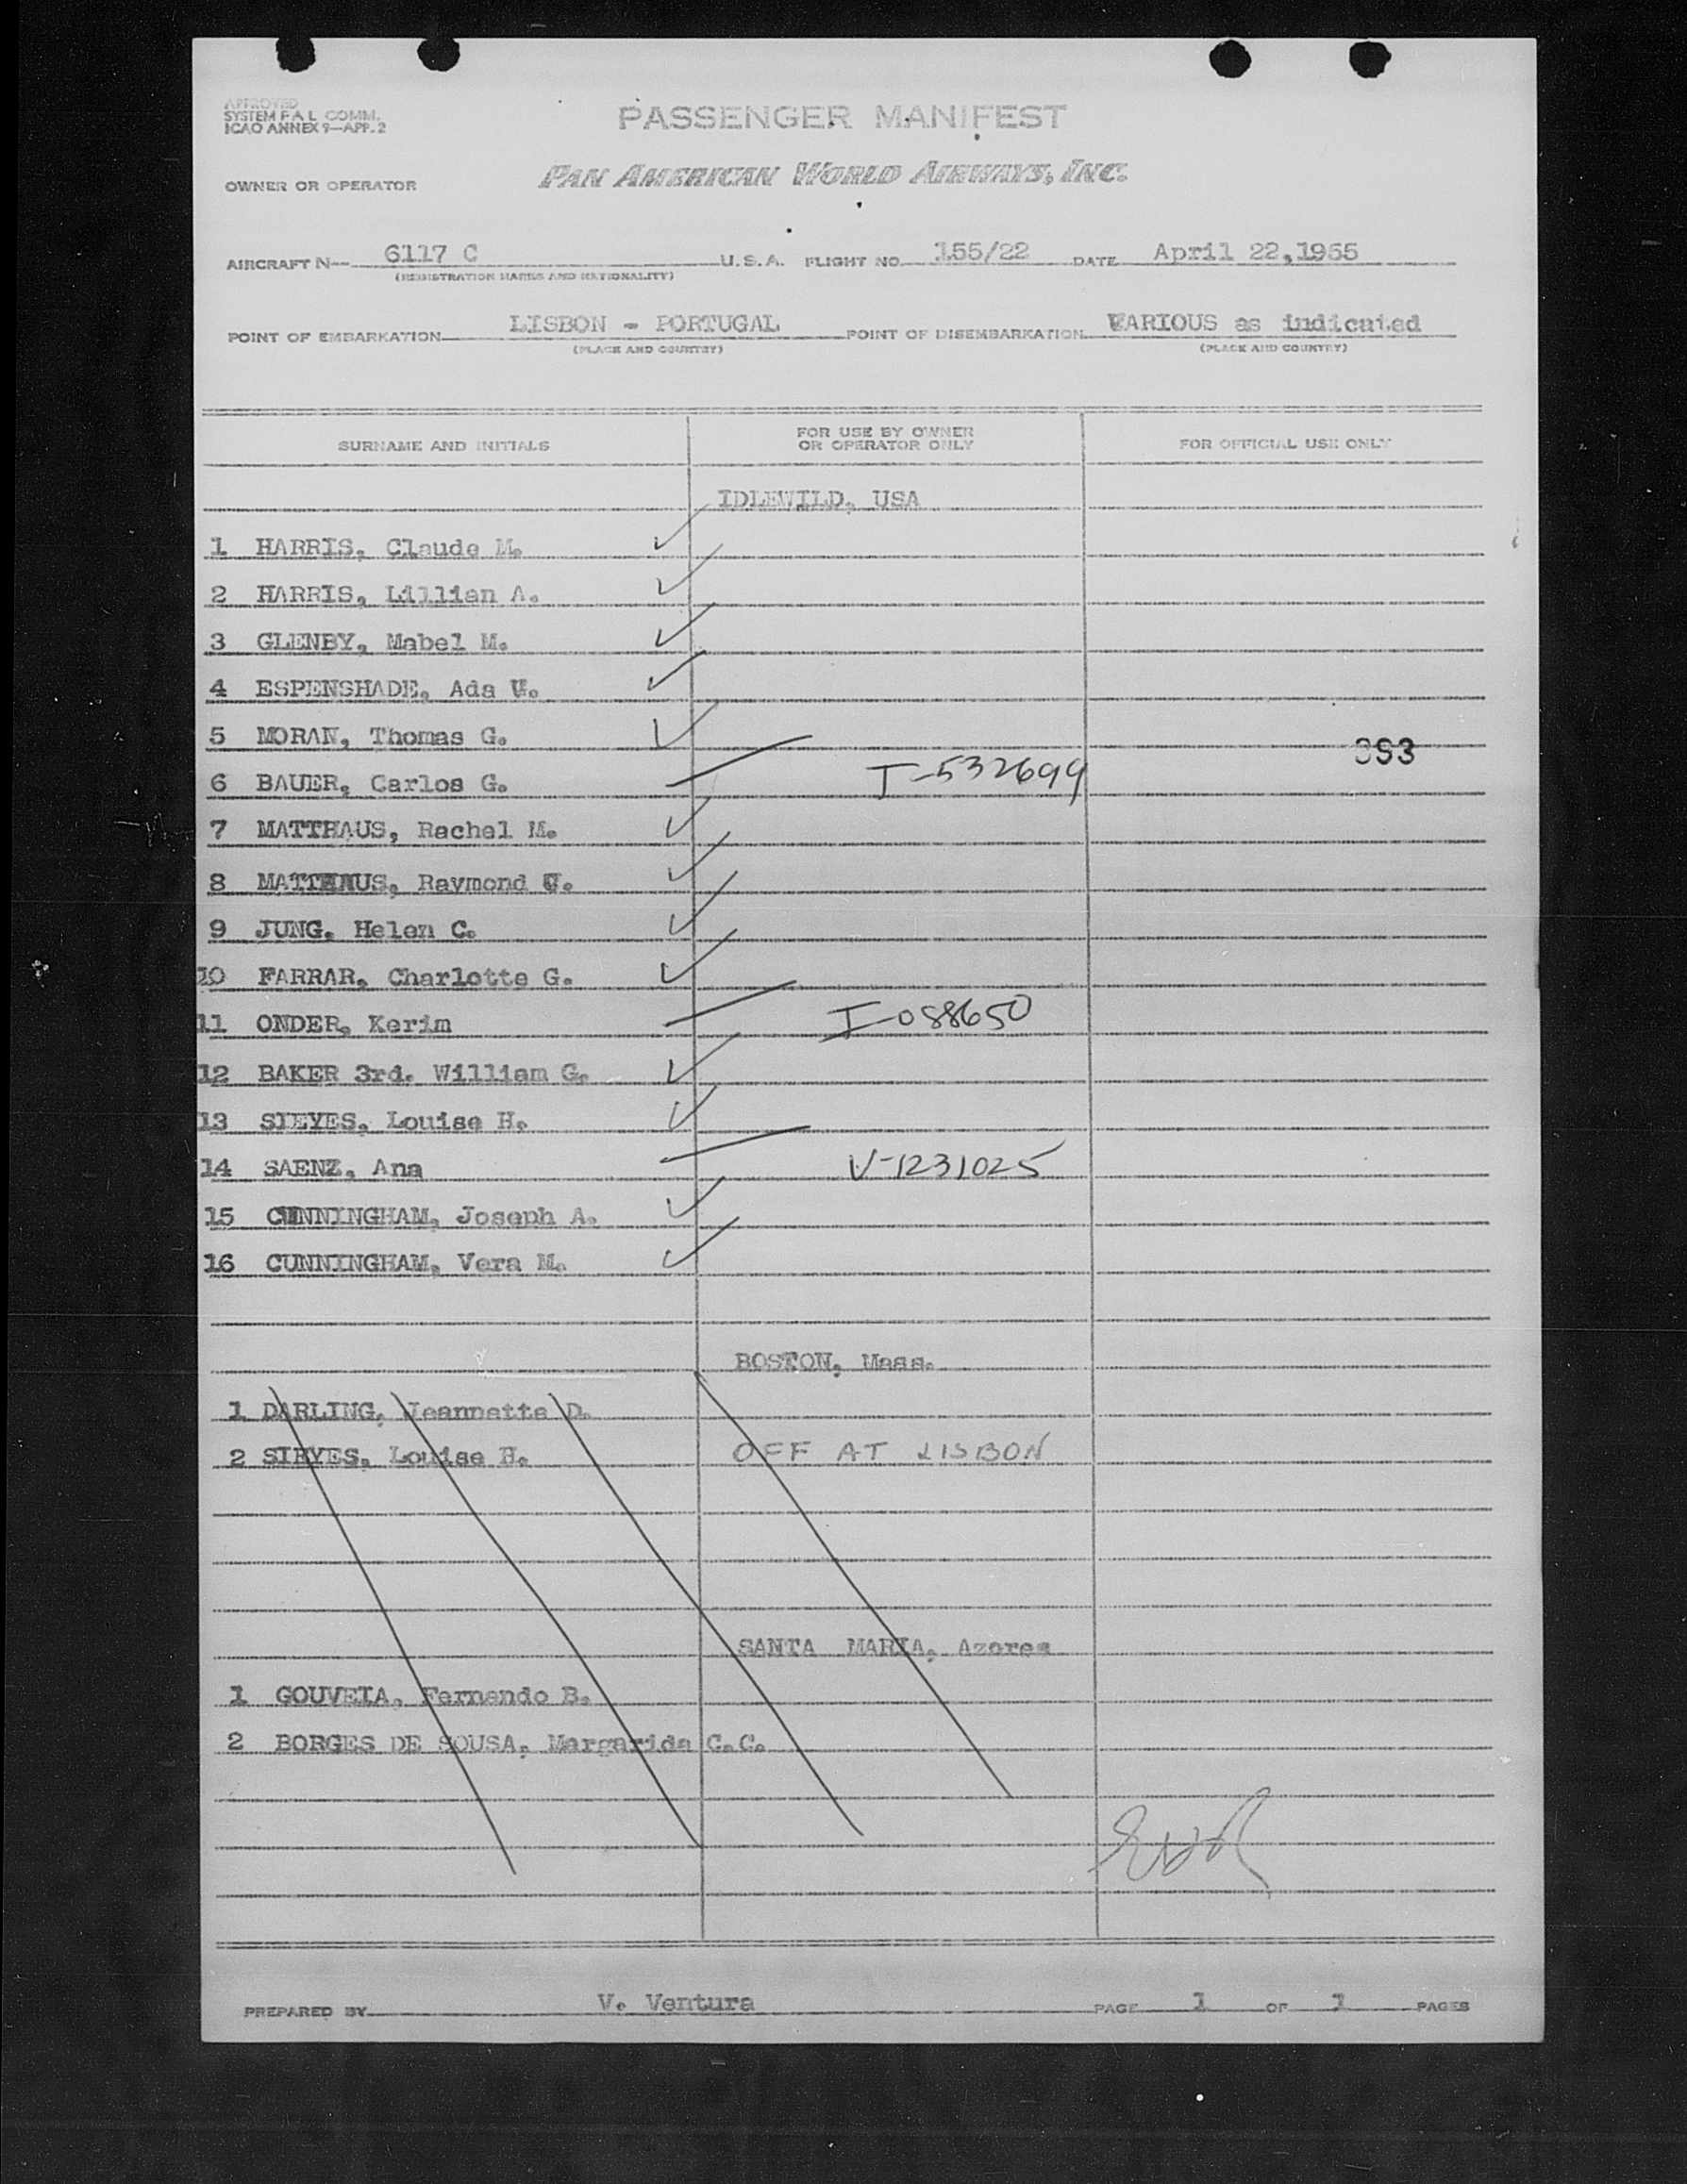 APPROVED
SYSTEM F A L COMM.
ICAO ANNEX 9—APP. 2
PASSENGER MANIFEST
OWNER OR OPERATOR PAN AMERICAN WORLD AIRWAYS, INC.
AIRCRAFT N— 6117 C U.S.A. FLIGHT NO. 155/22 DATE April 22,1955
(REGISTRATION MARKS AND NATIONALITY)
POINT OF EMBARKATION LISBON - PORTUGAL POINT OF DISEMBARKATION VARIOUS as indicated
(PLACE AND COUNTRY) (PLACE AND COUNTRY)
SURNAME AND INITIALS FOR USE BY OWNER OR OPERATOR ONLY FOR OFFICIAL USE ONLY
IDLEWILD, USA
1 HARRIS, Claude M.
2 HARRIS, Lillian A.
3 GLENBY, Mabel M.
4 ESPENSHADE, Ada
5 MORAN, Thomas G.
6 BAUER, Carlos G. I-532699
7 MATTHAUS, Rachel M.
8 MATTHAUS, Raymond
9 JUNG. Helen C.
10 FARRAR, Charlotte G.
11 ONDER, Kerim I-088650
12 BAKER 3rd. William G.
13 SIEYES, Louise H.
14 SAENZ, Ana V-1231025
15 CUNNINGHAM, Joseph A.
16 CUNNINGHAM, Vera M.
BOSTON, Mass.
1 DARLING, Jeannette D.
2 SIEYES, Louise H. OFF AT LISBON
SANTA MARIA, Azores
1 GOUVEIA, Fernando B.
2 BORGES DE SOUSA, Margarida C.C.
PREPARED BY V. Ventura PAGE 1 OF 1 PAGES